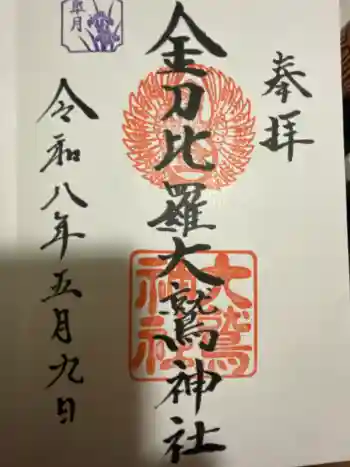 奉拝
金刀比羅大鷲神社
大鷲
神社
令和八年五月九日
皐月